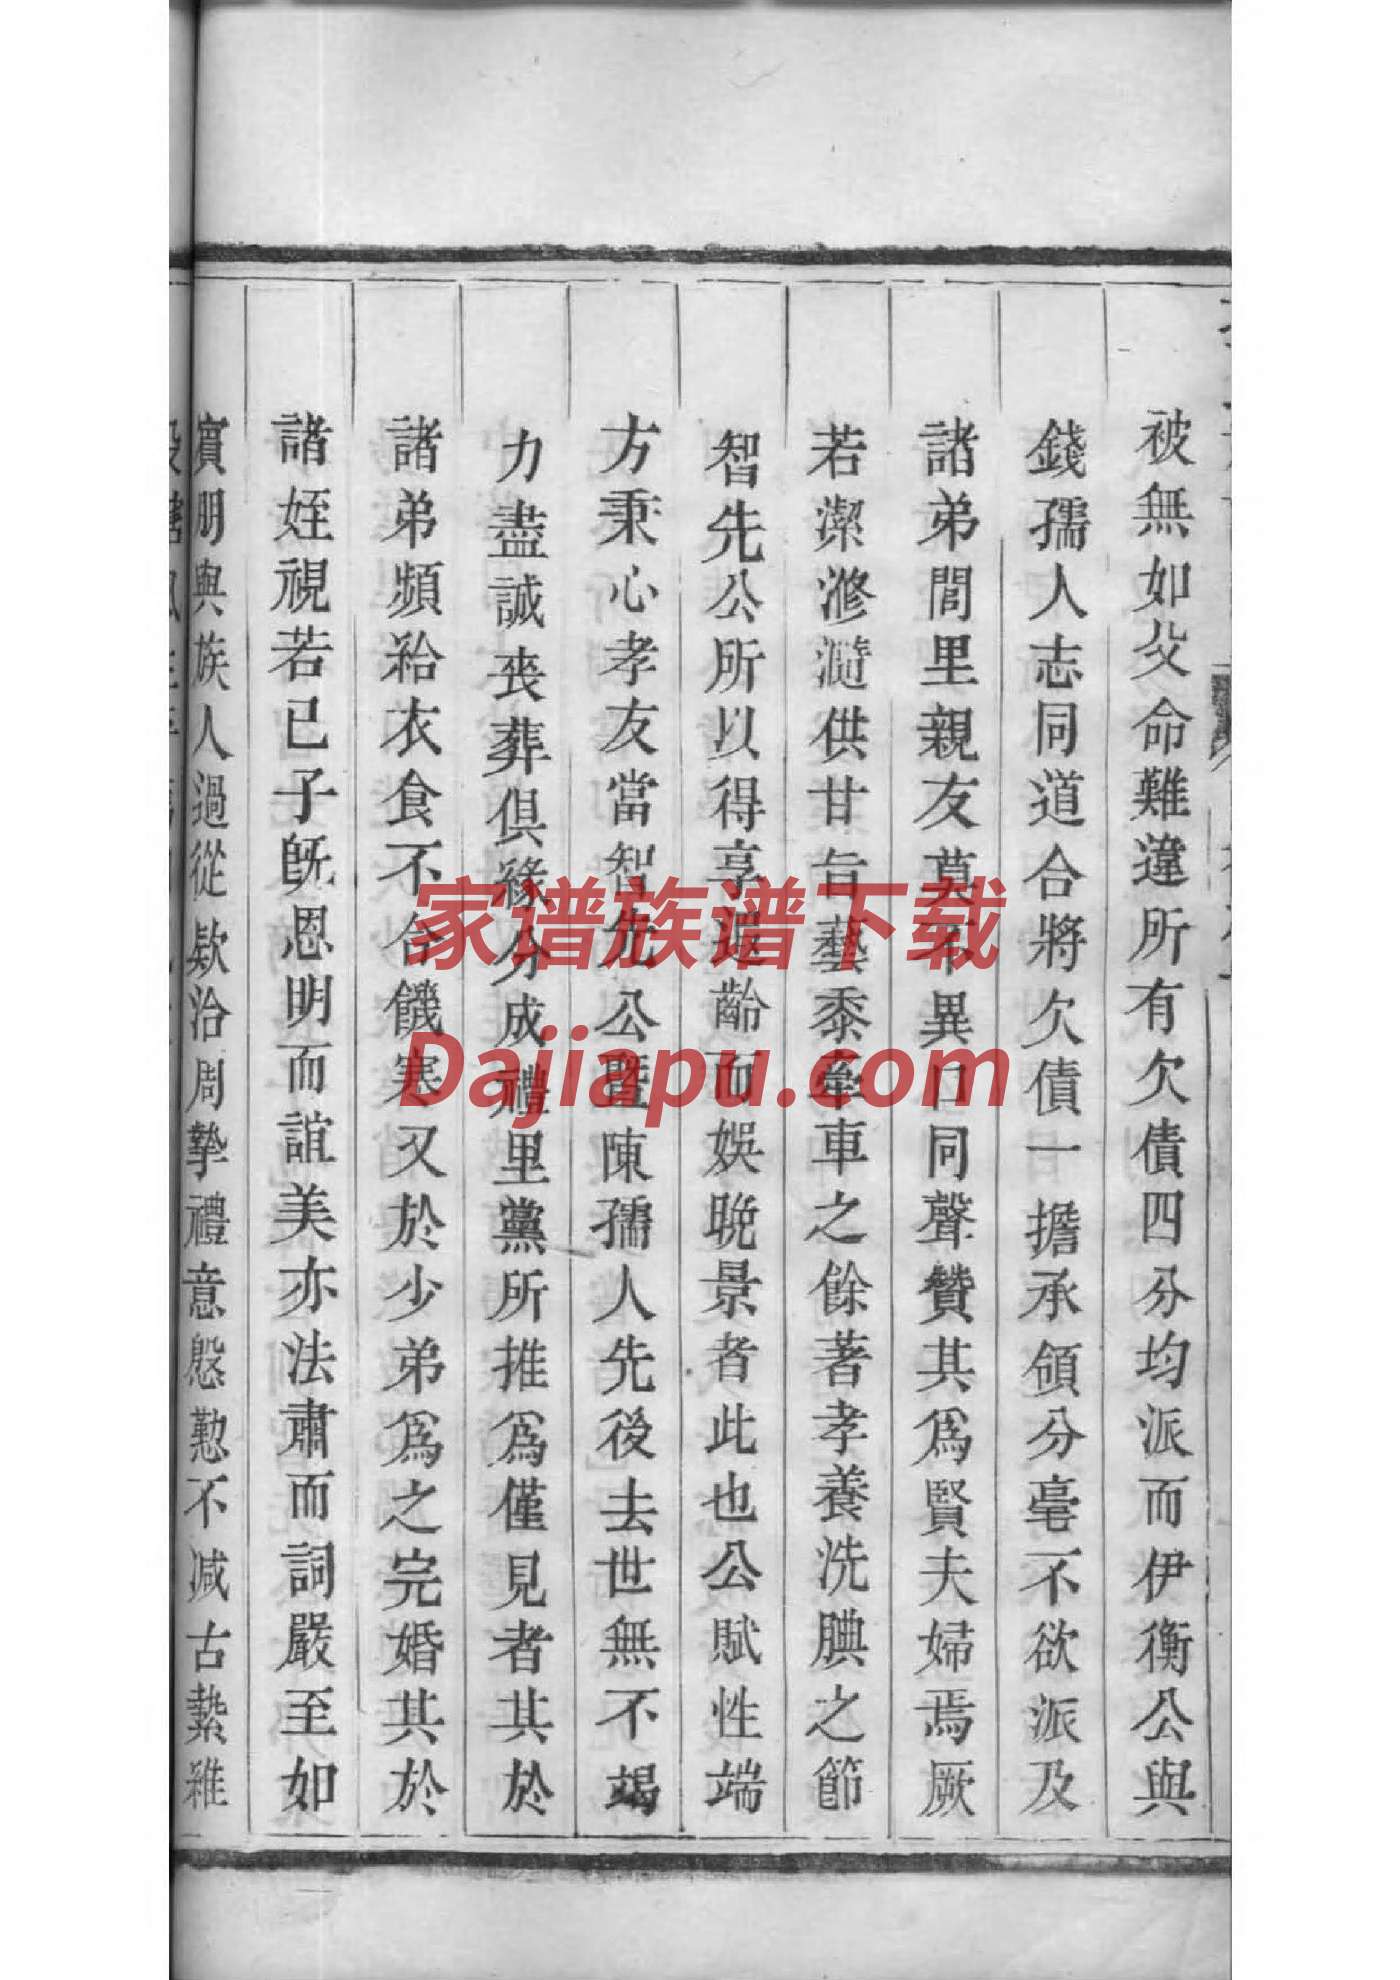 被無如父命難違所有欠債四分均派而伊衡公與
錢孺人志同道合將欠債一擔承領分毫不欲派及
諸弟閭里親友莫不異口同聲贊其為賢夫婦焉厥
若潔滫瀡供甘旨藝黍牽車之餘著孝養洗腆之節
智先公所以得享遐齡而娛晚景者此也公賦性端
方秉心孝友當智先公暨陳孺人先後去世無不竭
力盡誠喪葬俱緣分成禮里黨所推為僅見者其於
諸弟頻給衣食不令饑寒又於少弟為之完婚其於
諸姪視若已子旣恩明而誼美亦法肅而詞嚴至如
賓朋與族人過從欵洽周摯禮意慇懃不减古縶維
家谱族谱下载
Dajiapu.com